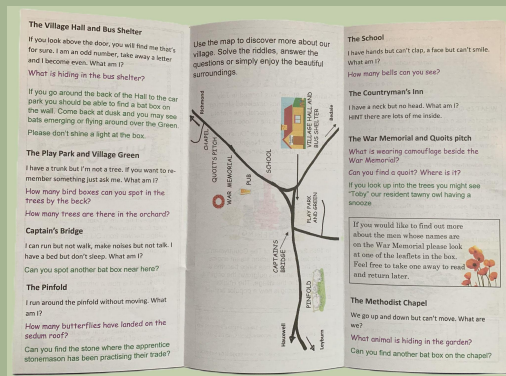 The Village Hall and Bus Shelter
If you look above the door, you will find me that's
for sure. I am an odd number, take away a letter
and I become even. What am I?
What is hiding in the bus shelter?
If you go around the back of the Hall to the car
park you should be able to find a bat box on
the wall. Come back at dusk and you may see
bats emerging or flying around over the Green.
Please don't shine a light at the box.
The Play Park and Village Green
I have a trunk but I'm not a tree. If you want to re-
member something just ask me. What am I?
How many bird boxes can you spot in the
trees by the beck?
How many trees are there in the orchard?
Captain's Bridge
I can run but not walk, make noises but not talk. I
have a bed but don't sleep. What am I?
Can you spot another bat box near here?
The Pinfold
I run around the pinfold without moving. What
am I?
How many butterflies have landed on the
sedum roof?
Can you find the stone where the apprentice
stonemason has been practising their trade?
Use the map to discover more about our
village. Solve the riddles, answer the
questions or simply enjoy the beautiful
surroundings.
Richmond
CHAPEL
QUOITS PITCH
WAR MEMORIAL
PUB
SCHOOL
VILLAGE HALL AND
BUS SHELTER
Bedale
PLAY PARK
AND GREEN
CAPTAIN'S
BRIDGE
PINFOLD
Hauxwell
Leyburn
The School
I have hands but can't clap, a face but can't smile.
What am I?
How many bells can you see?
The Countryman's Inn
I have a neck but no head. What am I?
HINT there are lots of me inside.
The War Memorial and Quoits pitch
What is wearing camouflage beside the
War Memorial?
Can you find a quoit? Where is it?
If you look up into the trees you might see
"Toby" our resident tawny owl having a
snooze
If you would like to find out more
about the men whose names are
on the War Memorial please look
at one of the leaflets in the box.
Feel free to take one away to read
and return later.
The Methodist Chapel
We go up and down but can't move. What are
we?
What animal is hiding in the garden?
Can you find another bat box on the chapel?